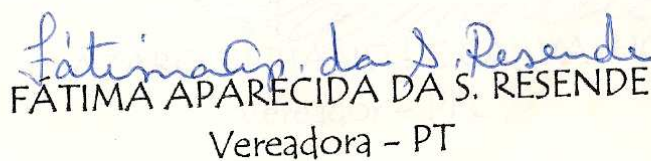 Fátima Ap. da S. Resende
FÁTIMA APARECIDA DA S. RESENDE
Vereadora - PT